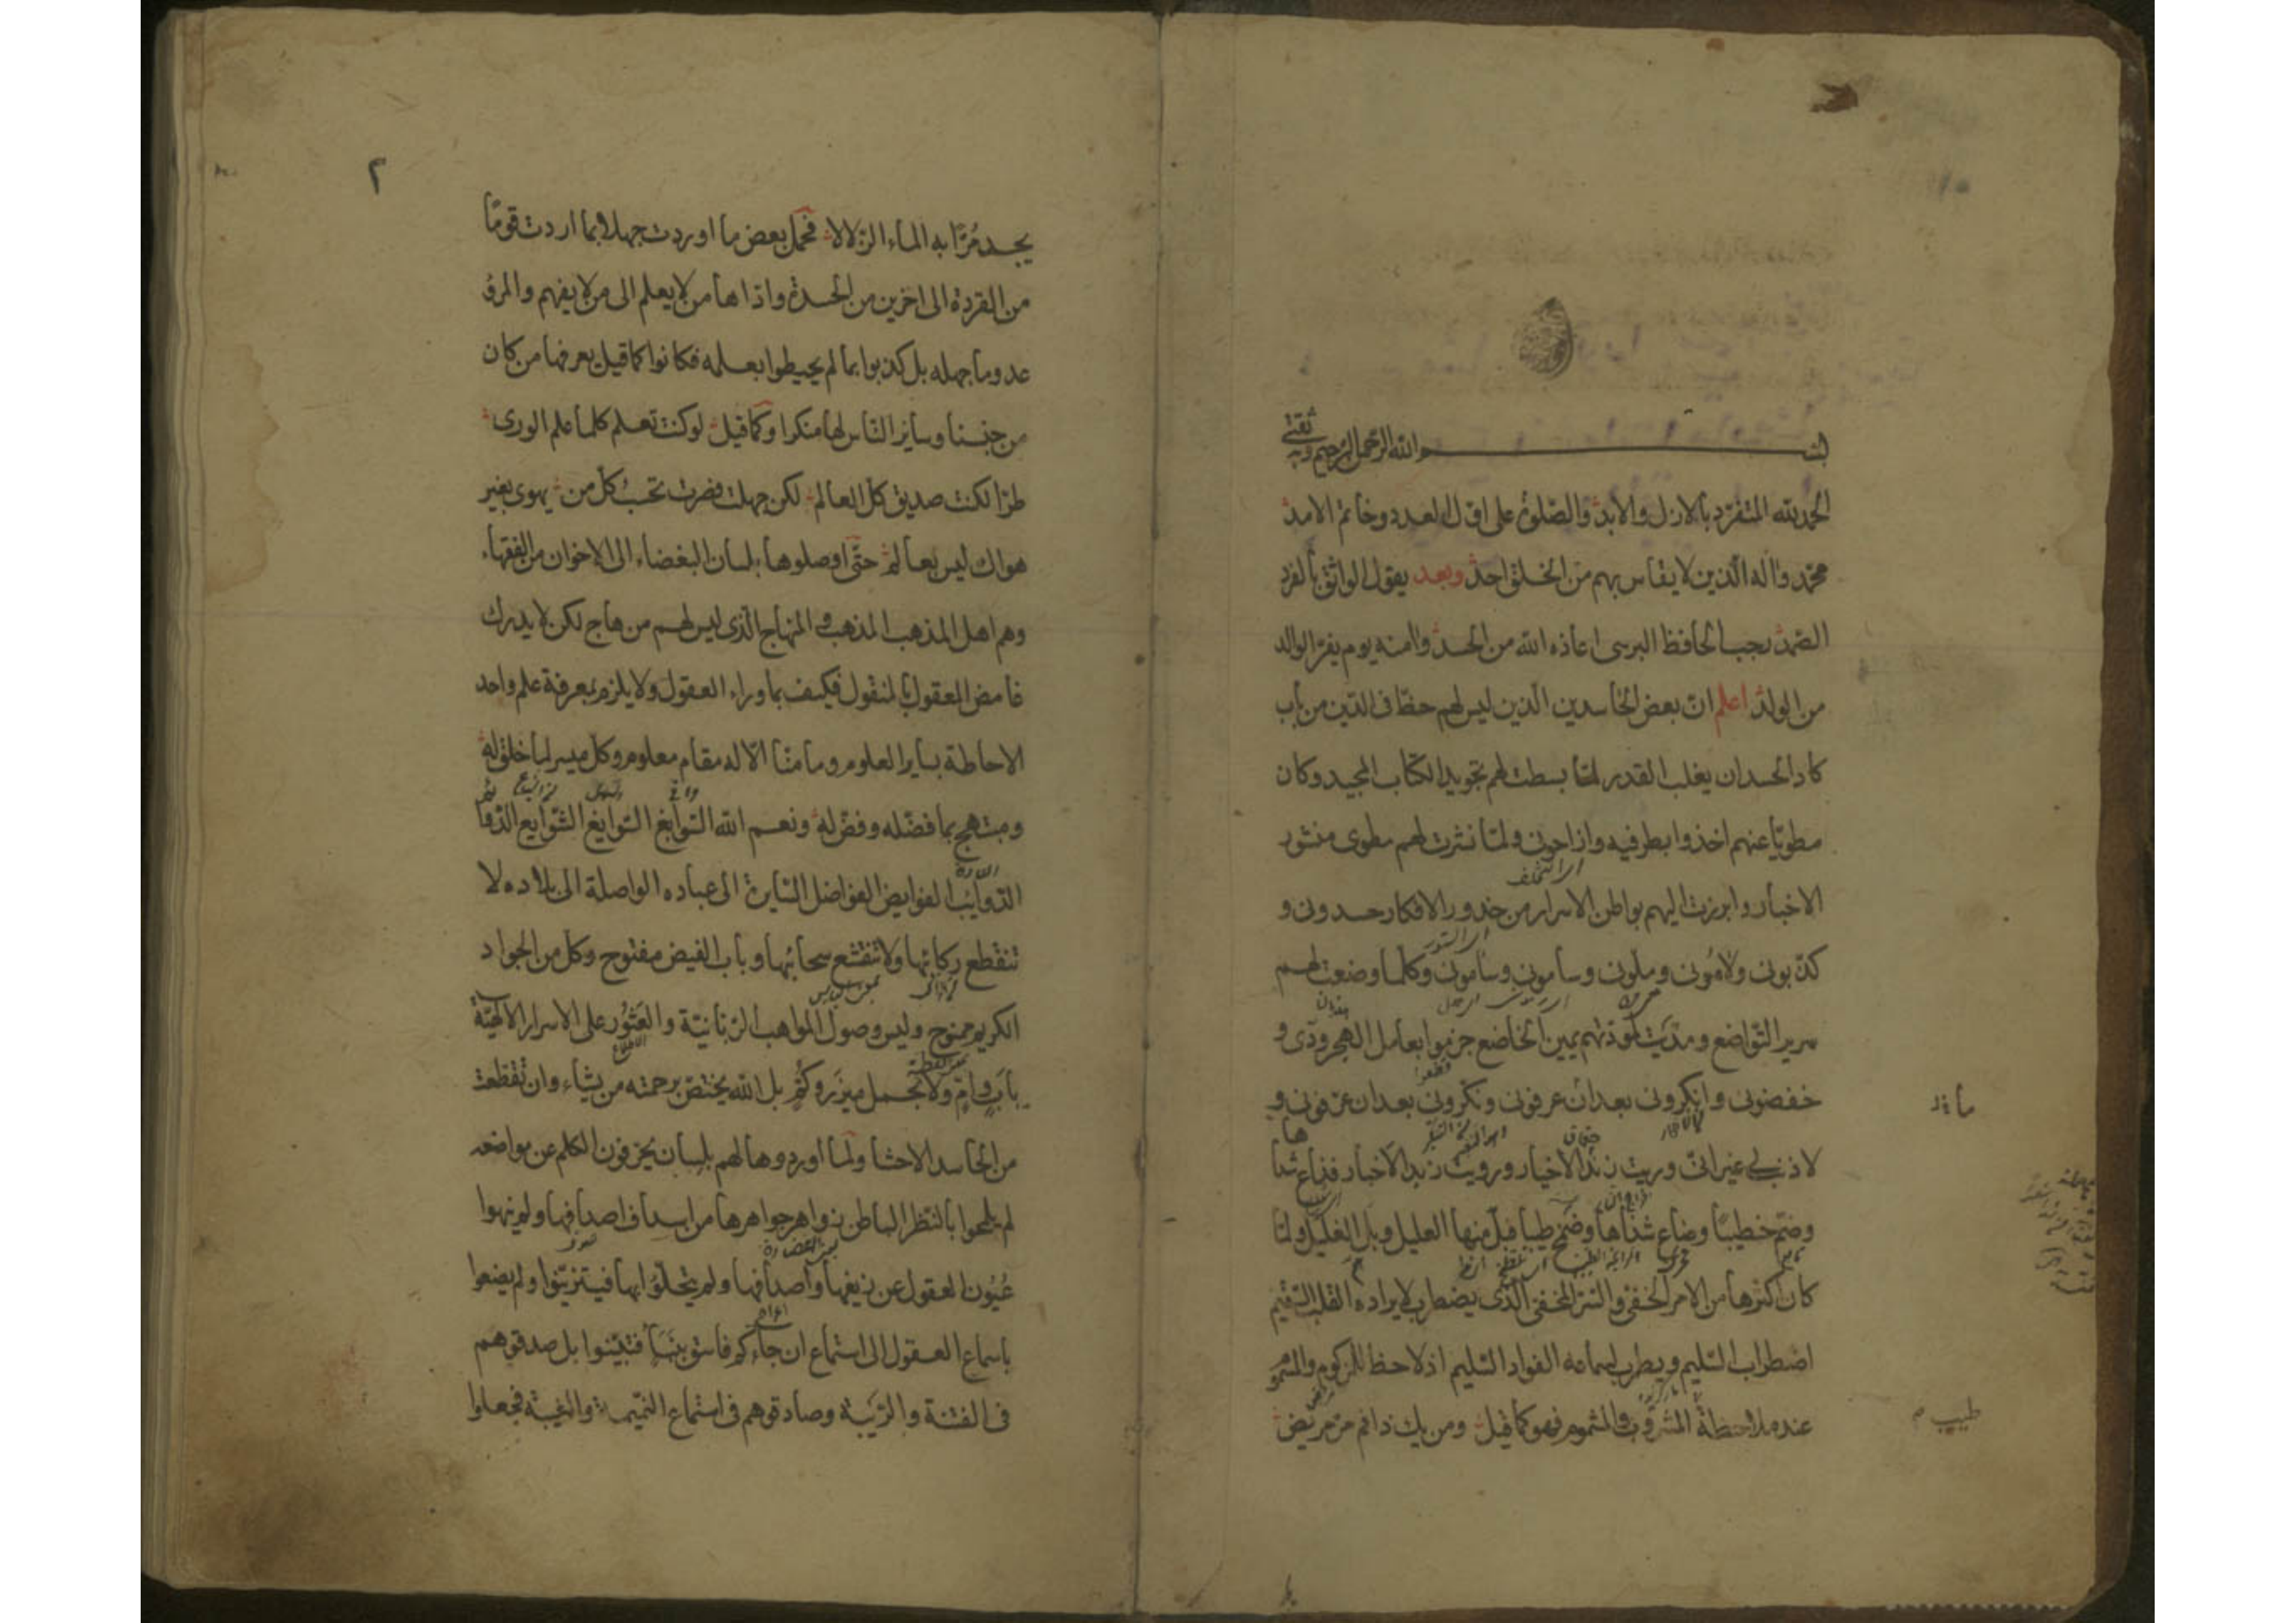 بسم الله الرحمن الرحيم وبه ثقتي
الحمد لله المتفرد بالازل والابد والصلوة على اول العدد وخاتم الامد
محمد واله الذين لا يقاس بهم من الخلق احد وبعد يقول الواثق بالفرد
الصمد رجب الحافظ البرسى اعاذه الله من الحسد وامنه يوم يفر الوالد
من الولد اعلم ان بعض الحاسدين الذين ليس لهم حظ فى الدين من باب
كاد الحسد ان يغلب القدر لما بسطت لهم تجويد الكتاب المجيد وكان
مطويا عنهم اخذوا بطرفيه وازاحونى ولما نثرت لهم مطوى منثور
الاخبار وابرزت اليهم بواطن الاسرار من خدور الافكار حسدونى و
كذبونى ولامونى وملونى وسامونى وسأمونى وكلما وضعت لهم
سرير التواضع ومديت لعوذتهم يمين الخاضع جزموا بعامل الهجر ودى و
خفضونى وانكرونى بعد ان عرفونى ونكرونى بعد ان عرفونى و
لا ذنب لى غير انى وريت زند الاخيار ورويت زبد الاخبار فذاع شذا
ها
وضم خطيبا وضاع شذاها وضمخ طيبا فبل منها العليل وبل الغليل ولما
كان اكثرها من الامر الخفى والسر المخفى الذى يضطرب لايراده القلب السقيم
اضطراب السليم ويطرب لسماعه الفواد السليم اذ لا حظ للزكوم والمسموم
عند ملاحظة المشروب والمشموم فهو كما قيل ومن يك ذا فم مر مريض
طبيب م
٢
يجد مرا به الماء الزلالا فحمل بعض ما اوردت جهلا بما اردت قوما
من القردة الى اخرين من الحسدة واذاها من لا يعلم الى من لا يفهم والمرؤ
عدو ما جهله بل كذبوا بما لم يحيطوا بعلمه فكانوا كما قيل يعرفها من كان
من جنسنا وساير الناس لها منكرا وكما قيل لو كنت تعلم كلما علم الورى
طرا لكنت صديق كل العالم لكن جهلت فصرت تحسب كل من يهوى بغير
هواك ليس بعالم حتى اوصلوها بلسان البغضاء الى الاخوان من الفقهاء
وهم اهل المذهب المذهب والمنهاج الذى ليس لهم من هاج لكن لا يدرك
غامض المعقول بالمنقول فكيف بما وراء العقول ولا يلزم بمعرفة علم واحد
الاحاطة بساير العلوم وما منا الا له مقام معلوم وكل ميسر لما خلق له
ومبتهج بما فضله وفضل له ونعم الله السوابغ السوايغ
الفوايض الفواضل السايرة الى عباده الواصلة الى بلاده لا
تنقطع ركائبها ولا تنقشع سحائبها وباب الفيض مفتوح وكل من الجواد
الكريم ممنوح وليس وصول المواهب الربانية والعثور على الاسرار الالهية
باب وام ولا بحمل ميزر وكم بل الله يختص برحمته من يشاء وان تقطعت
من الحاسد الاحشا ولما اوردوها لهم بلسان يحرفون الكلم عن مواضعه
لم يلمحوا بالنظر الباطن زواهر جواهرها من اسداف اصدافها ولم ينهوا
عيون العقول عن زيغها واصدافها ولم يتحلوا بها فيتزينوا ولم يضعوا
باسماع العقول الى استماع ان جاءكم فاسق بنبأ فتبينوا بل صدقوهم
فى الفتنة والريبة وصادقوهم فى استماع النميمة والغيبة فجعلوا